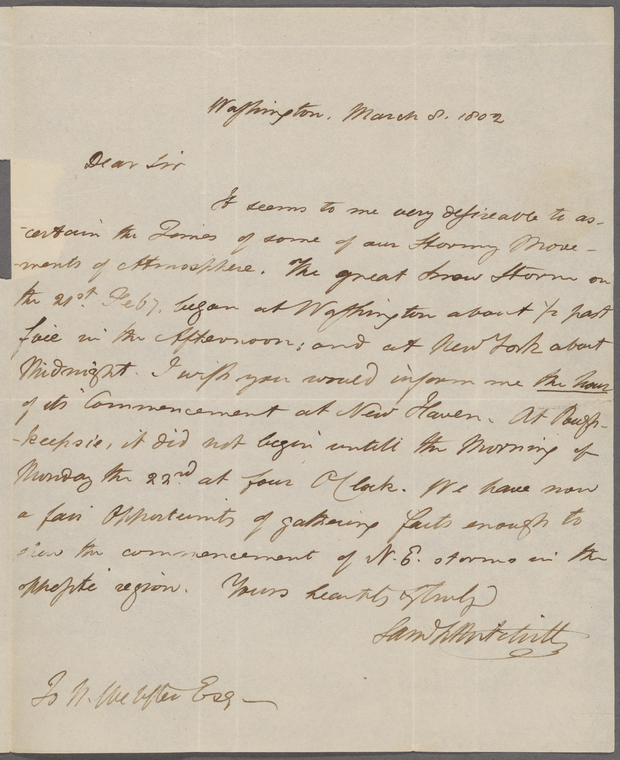 Washington, March 8. 1802
Dear Sir
It seems to me very desireable to as-
-certain the Times of some of our Stormy Move-
-ments of Atmosphere. The great Snow Storm on
the 21st Feby. began at Washington about 1/2 past
five in the Afternoon; and at New York about
Midnight. I wish you would inform me the hour
of its Commencement at New Haven. At Pough-
-keepsie, it did not begin untill the Morning of
Monday the 22nd at four O'Clock. We have now
a fair Opportunity of gathering facts enough to
shew the commencement of N.E. storms in the
opposite region. Yours heartily & truly
Saml L Mitchill
To N. Webster Esq